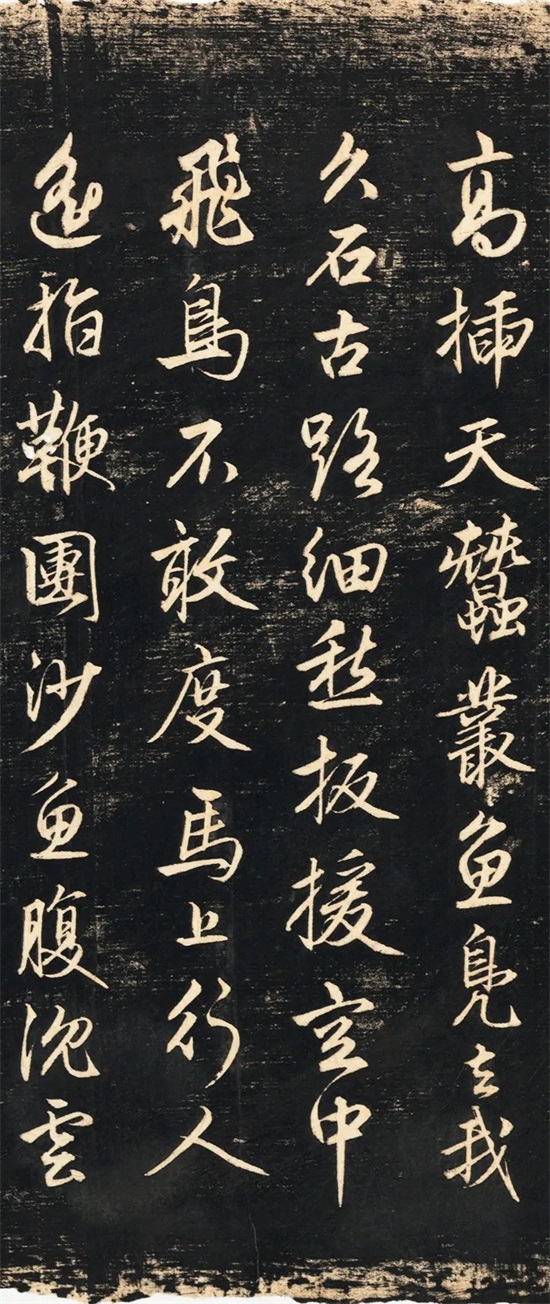 高插天蠶叢魚鳧去我
久石古路细愁扳援空中
飛鳥不敢度馬上行人
遥指鞭團沙魚腹沉雲